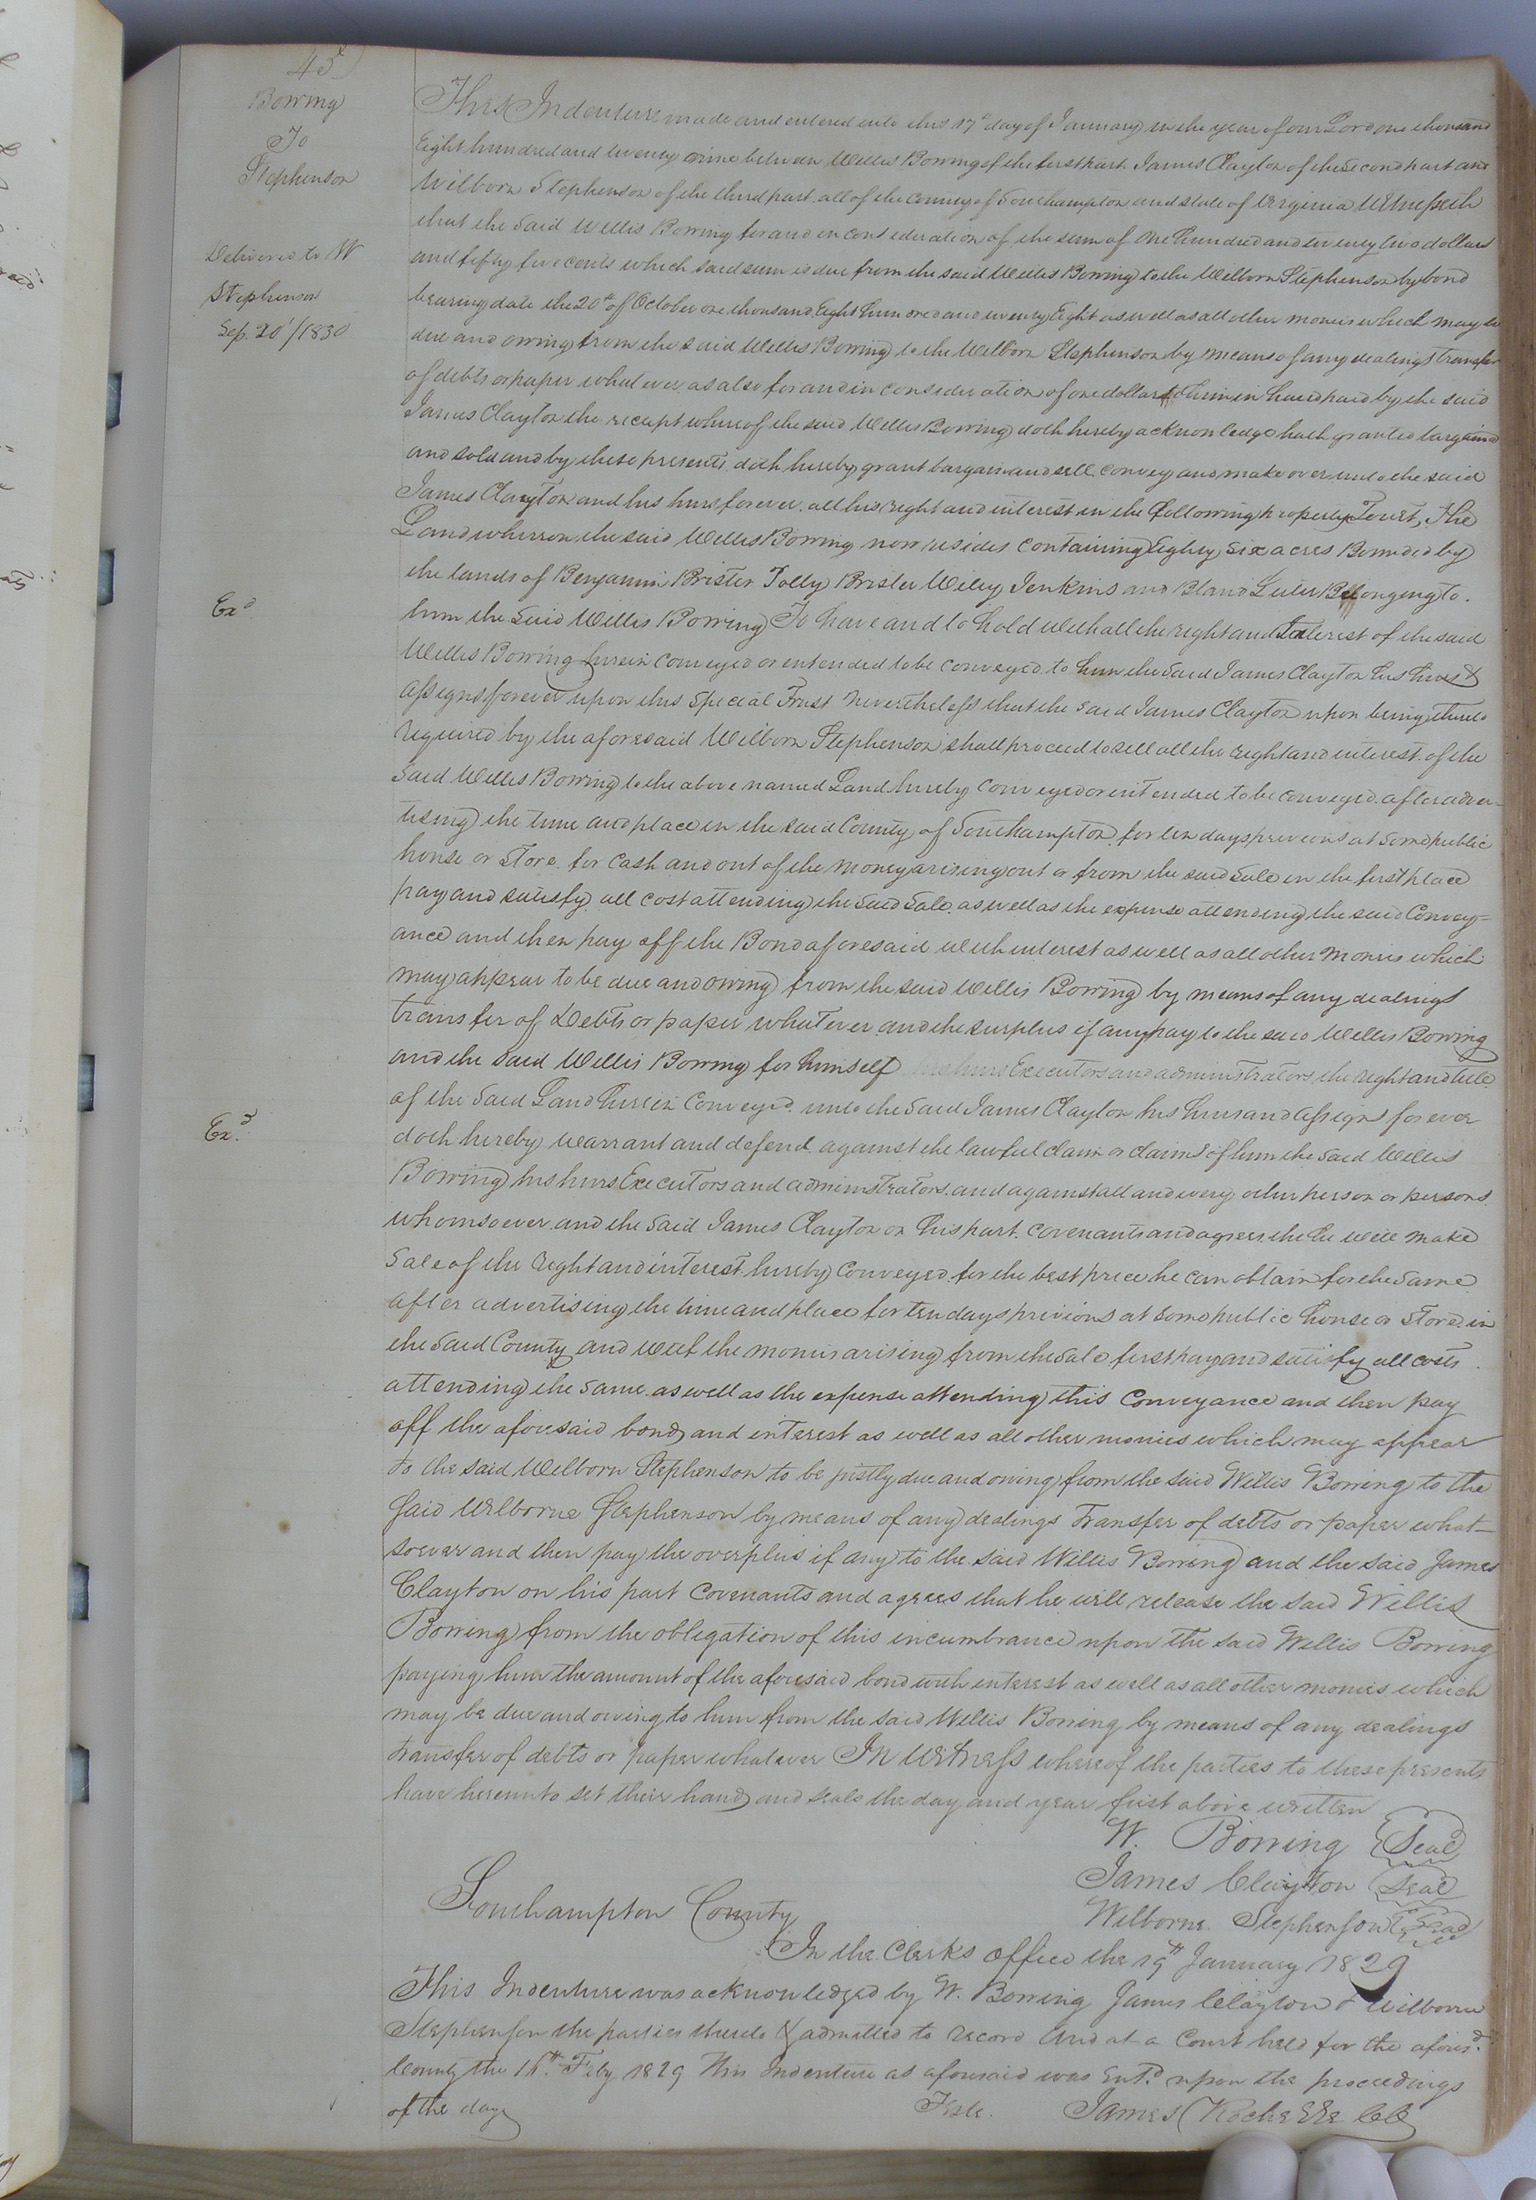 45
Bowing
To
Stephenson
Delivered to W
Stephenson
Sep. 20/1830
Exd
Exd
This Indenture made and entered into this 17th day of January in the year of our Lord one thousand
Eight hundred and twenty nine between Willis Bowing of the first part James Clayton of the Second part and
Wilborn Stephenson of the third part all of the County of Southampton and State of Virginia Witnesseth
that the Said Willis Bowing for and in consideration of the sum of one hundred and twenty two dollars
and fifty five cents which said sum is due from the said Willis Bowing to the Wilborn Stephenson by bond
bearing date the 20th of October one thousand Eight hundred and twenty Eight as well as all other monies which may be
due and owing from the said Willis Bowing to the Wilborn Stephenson by means of any dealings transfer
of debts or paper whatever as also for and in consideration of one dollar to him in hand paid by the said
James Clayton the receipt whereof the said Willis Bowing doth hereby acknowledge hath granted bargained
and sold and by these presents doth hereby grant bargain and sell convey and make over unto the said
James Clayton and his heirs forever all his right and interest in the following property Towit, The
Land whereon the said Willis Bowing now resides containing Eighty Six acres Bounded by
the lands of Benjamin Brister Tolly Brister Wiley Jenkins and Bland Luter Belonging to
him the Said Willis Bowing To have and to hold with all the right and Interest of the said
Willis Bowing herein conveyed or intended to be conveyed to him the Said James Clayton his heirs &
assigns forever upon this Special Trust nevertheless that the said James Clayton upon being thereto
required by the aforesaid Wilborn Stephenson shall proceed to sell all the right and interest of the
Said Willis Bowing to the above named Land hereby conveyed or intended to be conveyed after adver-
tising the time and place in the said County of Southampton for ten days previous at some public
house or Store for cash and out of the money arising out or from the said Sale in the first place
pay and satisfy all cost attending the said Sale as well as the expense attending the said Convey=
ance and then pay off the Bond aforesaid with interest as well as all other monies which
may appear to be due and owing from the said Willis Bowing by means of any dealings
transfer of Debts or paper whatever and the surplus if any pay to the said Willis Bowing
and the said Willis Bowing for himself his heirs Executors and administrators the right and title
of the Said Land herein Conveyed unto the Said James Clayton his heirs and assigns forever
doth hereby warrant and defend against the lawful claim or claims of him the Said Willis
Bowing his heirs Executors and administrators and against all and every other person or persons
whomsoever and the Said James Clayton on his part covenants and agrees the he will make
Sale of the right and interest hereby Conveyed for the best price he can obtain for the Same
after advertising the time and place for ten days previous at some public house or Store in
the Said County and with the monies arising from the Sale first pay and satisfy all costs
attending the same as well as the expense attending this Conveyance and then pay
off the aforesaid bond and interest as well as all other monies which may appear
to the said Wilborn Stephenson to be justly due and owing from the said Willis Bowing to the
said Wilborne Stephenson by means of any dealings Transfer of debts or paper what-
soever and then pay the overplus if any to the said Willis Bowing and the said James
Clayton on his part Covenants and agrees that he will release the said Willis
Bowing from the obligation of this incumbrance upon the said Willis Bowing
paying him the amount of the aforesaid bond with interest as well as all other monies which
may be due and owing to him from the said Willis Bowing by means of any dealings
transfer of debts or paper whatever In Witness whereof the parties to these presents
have hereunto set their hand and seals the day and year first above written
W. Bowing Seal
James Clayton Seal
Wilborne Stephenson Seal
Southampton County
In the Clerks office the 19th January 1829
This Indenture was acknowledged by W. Bowing James Clayton & Wilborne
Stephenson the parties thereto & admitted to record And at a Court held for the afores.d
County the 16th Feby 1829 This Indenture as aforesaid was Entd upon the proceedings
of the day
Teste. James Rochelle CC